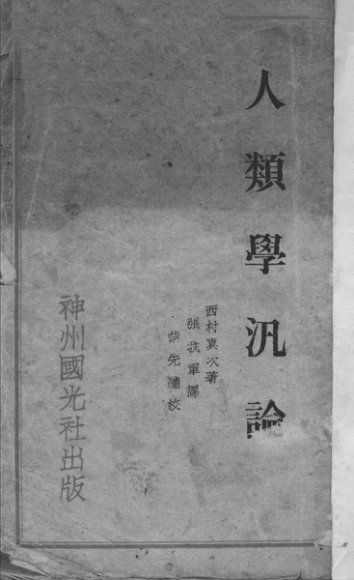 人類學汎論
西村真次著
張我軍譯
胡先驌校
神州國光社出版